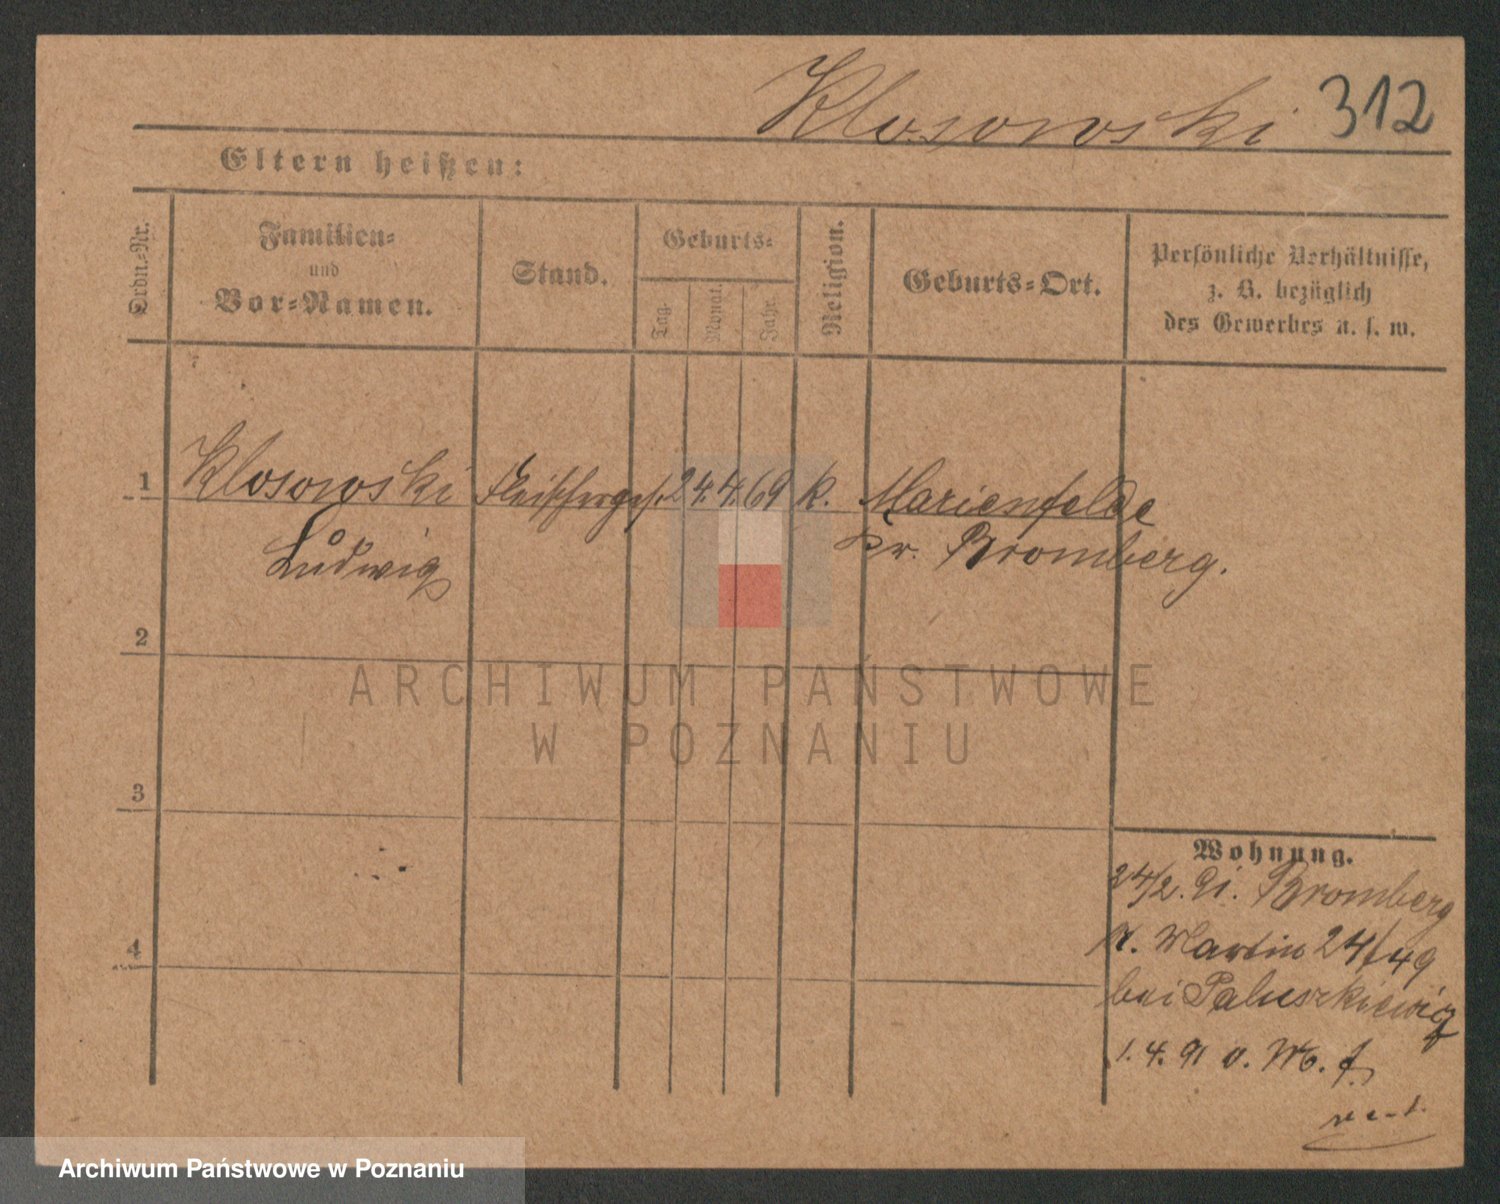 Klosowski 312
Eltern heißen:
Ordn.-Nr.
Familien-
und
Vor-Namen.
Stand.
Geburts-
Tag.
Monat.
Jahr.
Religion.
Geburts-Ort.
Persönliche Verhältnisse,
z. B. bezüglich
des Gewerbes u. s. w.
1 Klosowski Fleischerges. 24. 4. 69 k. Marienfelde
Ludwig Kr. Bromberg.
2
ARCHIWUM PAŃSTWOWE
W POZNANIU
3
Wohnung.
24/2. 91. Bromberg
Martin 24/49
bei Paluszkiewicz
4
1. 4. 91 v.
Archiwum Państwowe w Poznaniu